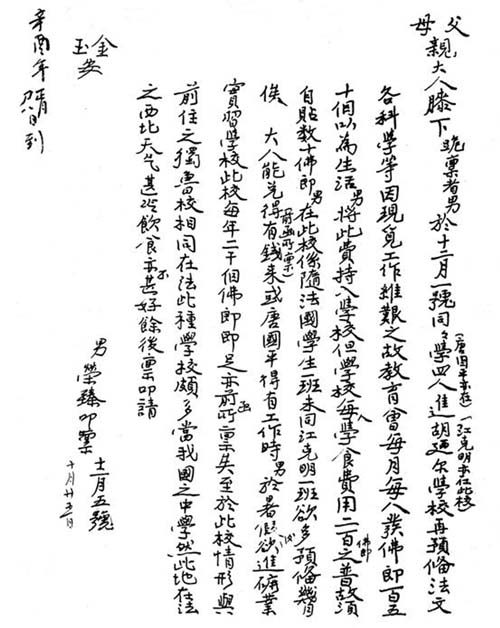 父母親大人膝下跪稟者男於十二月一號同學四人進胡廼尔學校再預備法文
(江克明亦在此校)
各科學等因現覓工作維艱之故教育會每月每人發佛郎百五
十個以為生活男將此費持入學校但學校每人學食費用二百之普故須
佛郎
自貼数十佛郎男在此校係隨法國學生一班未同江克明一班欲多預備幾月
俟 大人能兑得有錢来或唐國平得有工作時男於暑假欲進礦業
(前函所稟)
實習學校此校每年二千個佛郎即足亦前函所稟矣至於此校情形與
前住之獨魯校相同在法此種學校頗多當我國之中學然此地在法
之西北天气甚冷飲食亦不甚好餘後稟叩請
金玉安
男榮臻叩稟 十二月五號
十月廿五
辛酉年 到